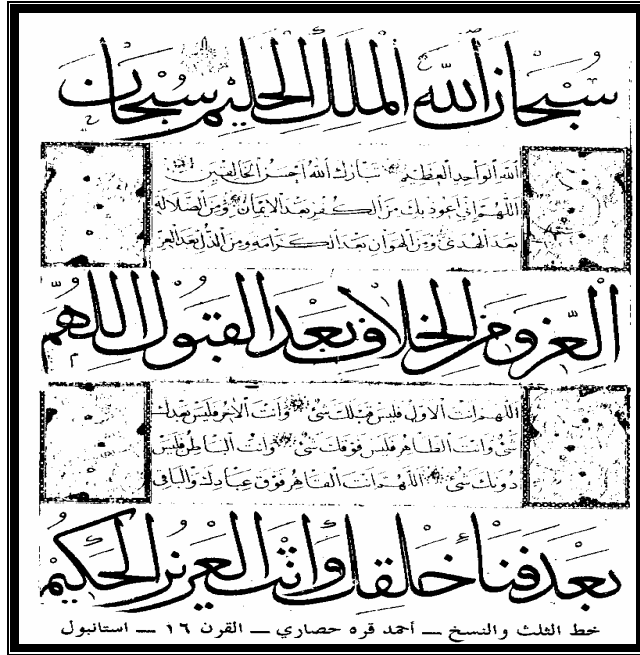 سبحان الله الملك الحليم سبحان
الله الواحد العظيم تبارك الله احسن الخالقين
اللهم اني اعوذ بك من الكفر بعد الايمان ومن الضلالة
بعد الهدى ومن الهوان بعد الكرامة ومن الذل بعد العز
العز ومن الخلاف بعد القبول اللهم
اللهم انت الاول فليس قبلك شئ وانت الاخر فليس بعدك
شئ وانت الظاهر فليس فوقك شئ وانت الباطن فليس
دونك شئ اللهم انت القاهر فوق عبادك والباقي
بعد فناء خلقك وانت العزيز الحكيم
خط الثلث والنسخ — أحمد قره حصاري — القرن ١٦ — استانبول